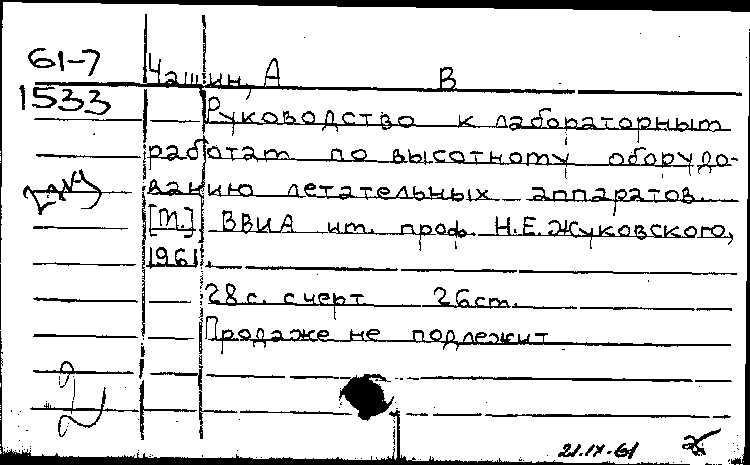 61-7
1533
Чашин, А В
Руководство к лабораторным
работам по высотному оборудо-
ванию летательных аппаратов.
[М.] ВВИА им. проф. Н.Е.Жуковского,
1961.
28 с. с черт 26 см.
Продаже не подлежит
2
21.IX-61